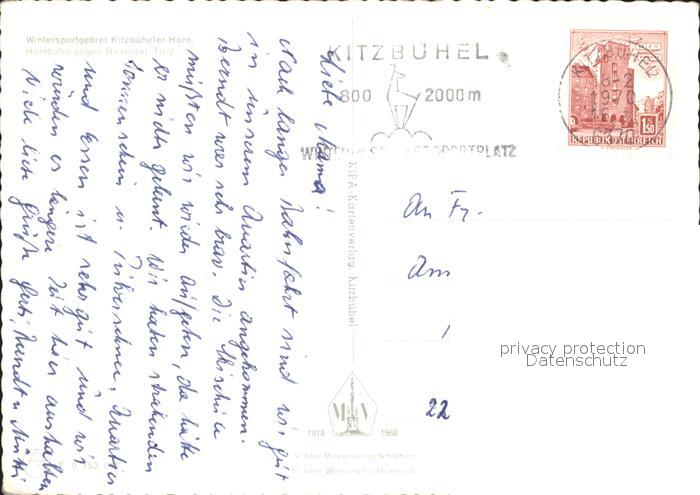 Wintersportgebiet Kitzbüheler Horn,
Hornbahn gegen Brixental, Tirol
Liebe Mama!
Nach langer Bahnfahrt sind wir gut
in unserem Quartier angekommen.
Berndt war sehr brav. Die Skischule
mußten wir wieder aufgeben, da hätte
er nicht gelernt. Wir haben strahlenden
Sonnenschein u. Pulverschnee, Quartier
und Essen ist sehr gut und wir
würden es längere Zeit hier aushalten
Viele liebe Grüße Berndt u. Mutti
KIPA-Kartenverlag, Kitzbühel
KITZBÜHEL
800 2000m
SPORTPLATZ
KITZBÜHEL
1970
6370
WIEN
1.50
REPUBLIK ÖSTERREICH
An Fr.
Am
22
privacy protection
Datenschutz
M V
1918 1968
Jahre Werbung für Österreich